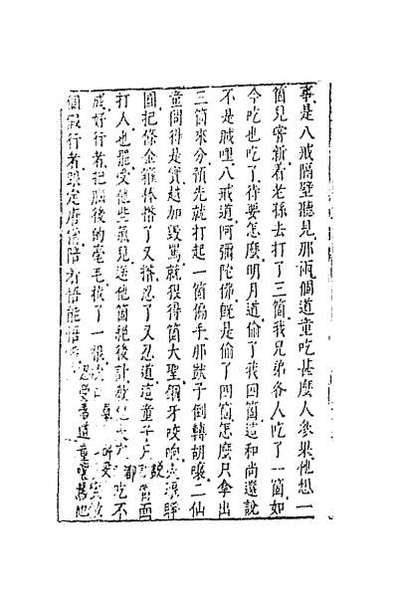 事是八戒隔壁聽見那兩個道童吃甚麼人參果他想一
箇兒嘗新着老孫去打了三箇我兄弟各人吃了一箇如
今吃也吃了待要怎麼明月道偷了我四箇這和尚還說
不是賊哩八戒道阿彌陀佛既是偷了四箇怎麼只拿出
三箇來分預先就打起一箇偏手那獃子倒轉胡嚷二仙
童問得是實越加毀罵就狠得箇大聖鋼牙咬响火眼睜
圓把條金箍棒揝了又揝忍了又忍道這童子只說當面
打人也罷受他些氣兒送他箇絕後計教他大家都吃不
成好行者把腦後的毫毛拔了一根
個假行者跟定唐僧陪着悟能悟淨忍受着道童嚷罵他